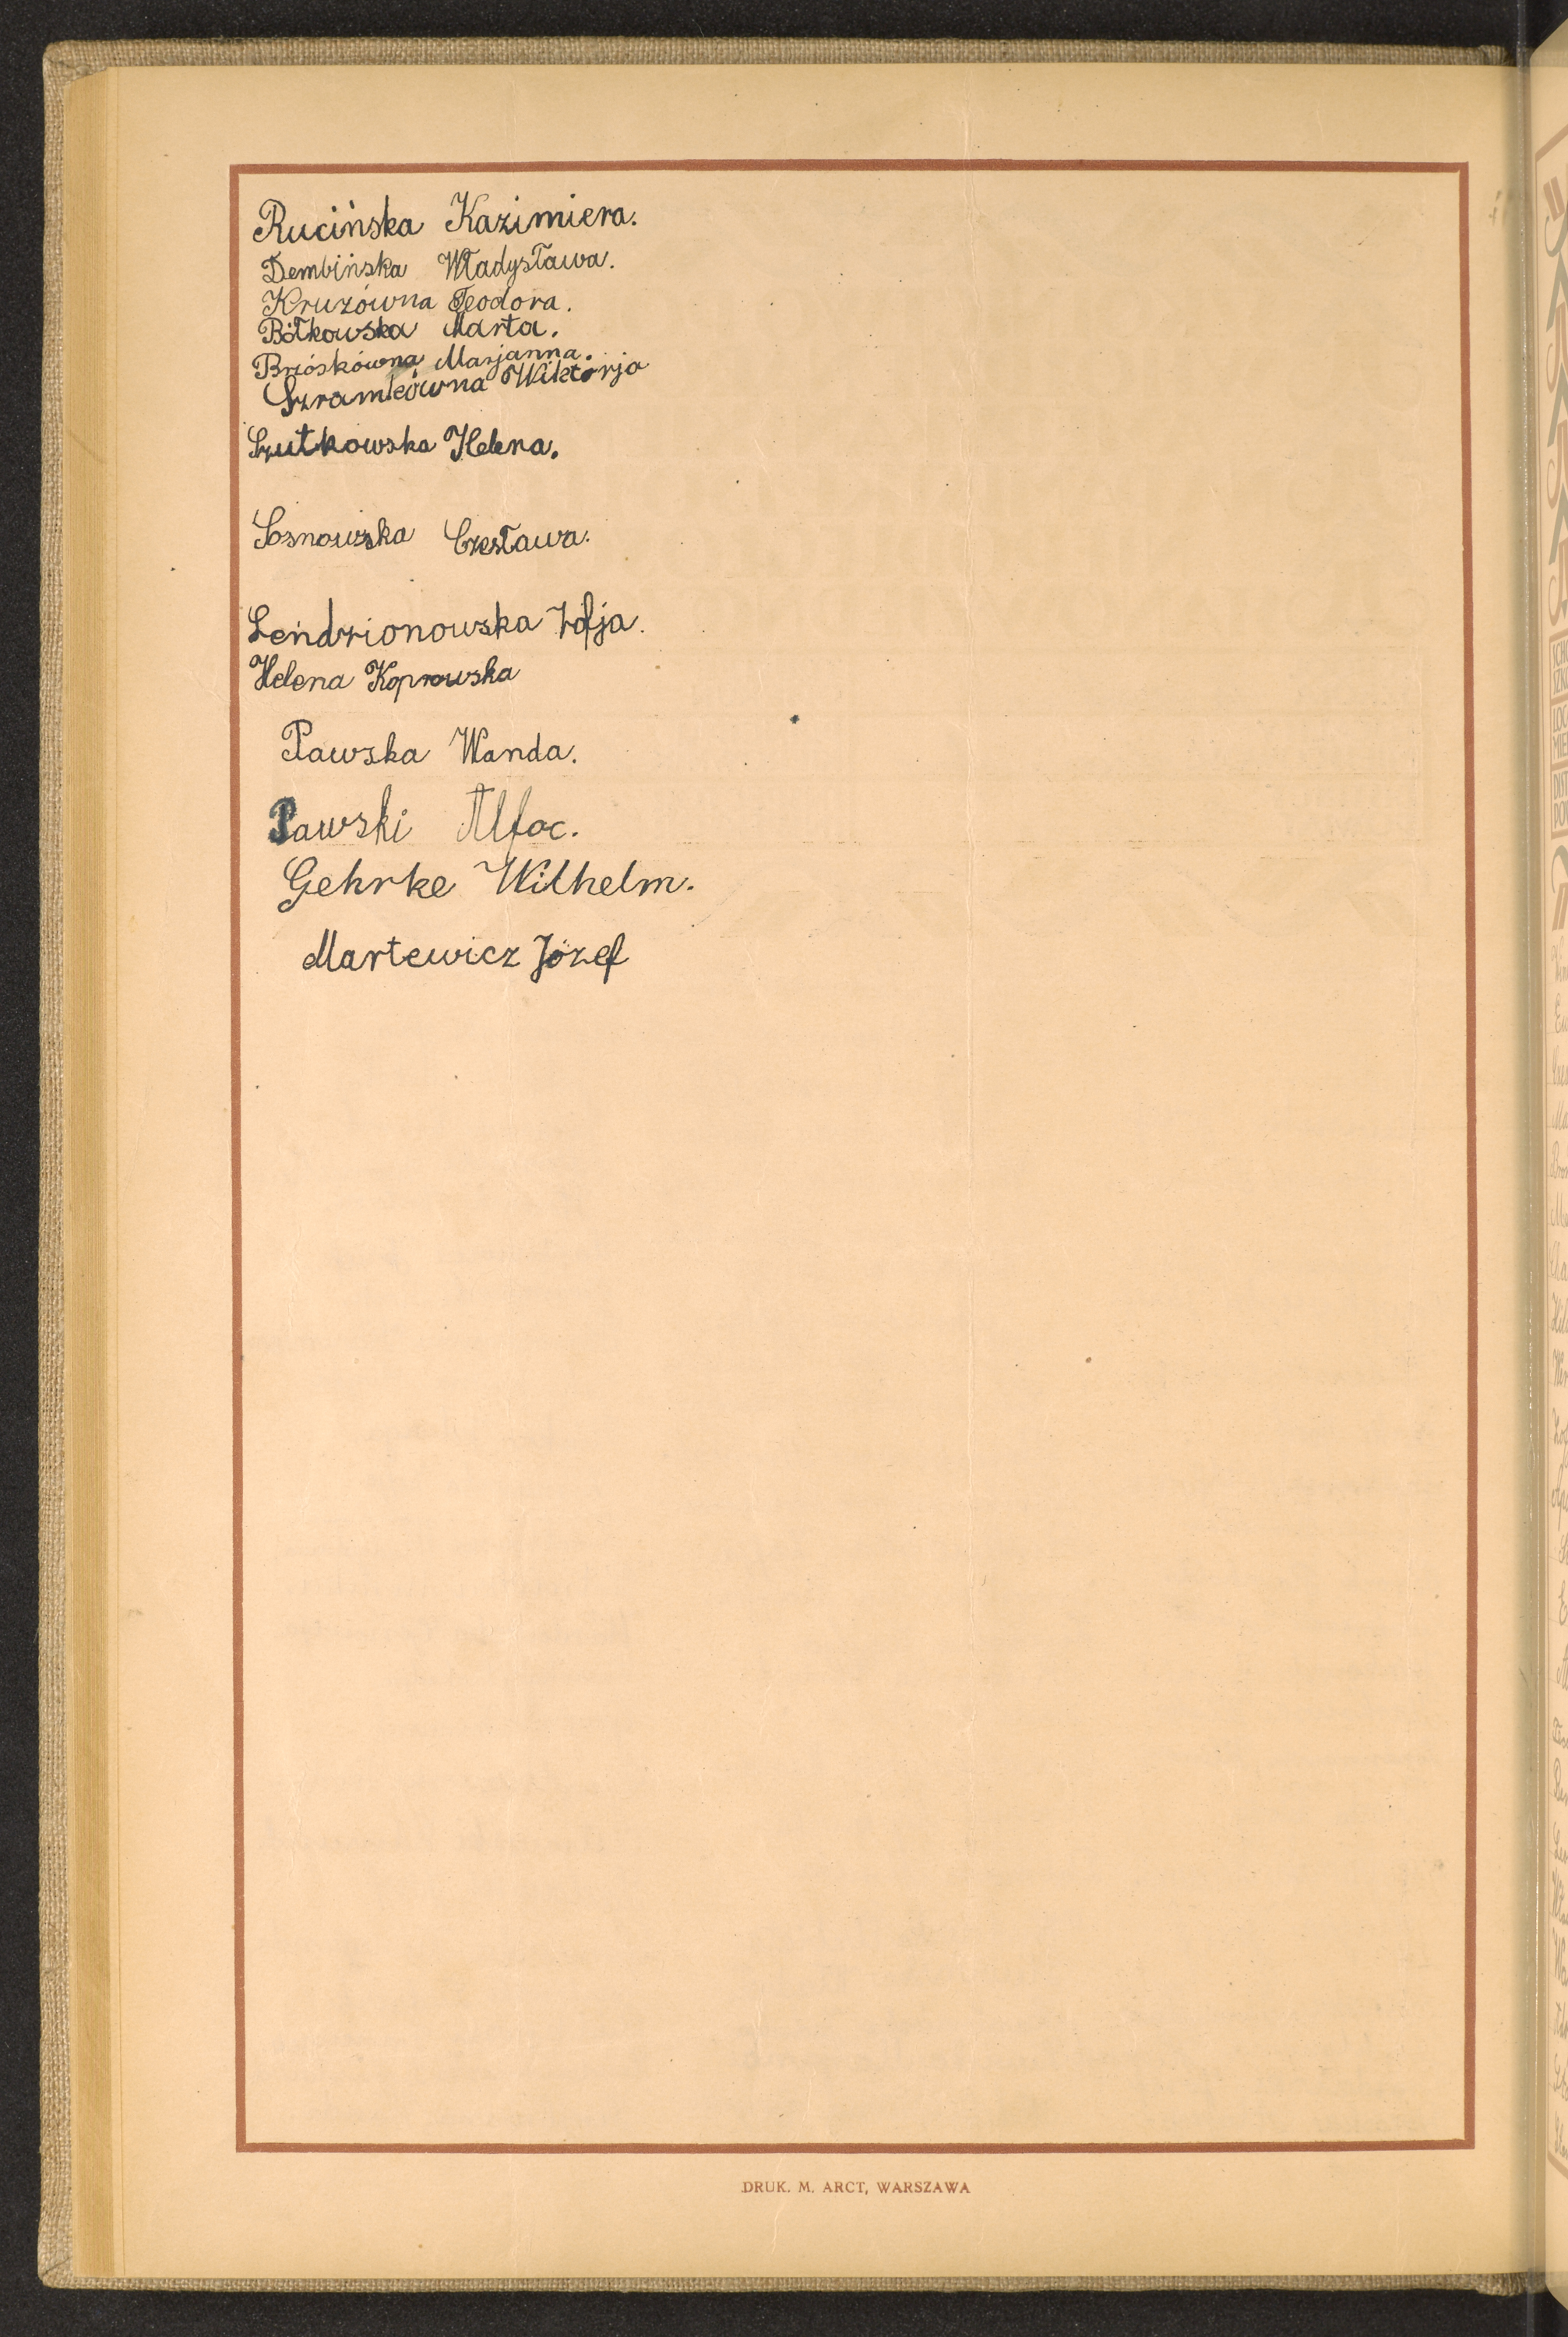 Rucińska Kazimiera.
Dembińska Władysława.
Kruzówna Teodora.
Bółkowska Marta.
Brzóskówna Marjanna.
Szramkówna Wiktorja
Szutkowska Helena.
Sosnowska Czesława.
Lendzionowska Zofja.
Helena Koprowska
Pawska Wanda.
Pawski Alfoc.
Gehrke Wilhelm.
Martewicz Józef
DRUK. M. ARCT, WARSZAWA